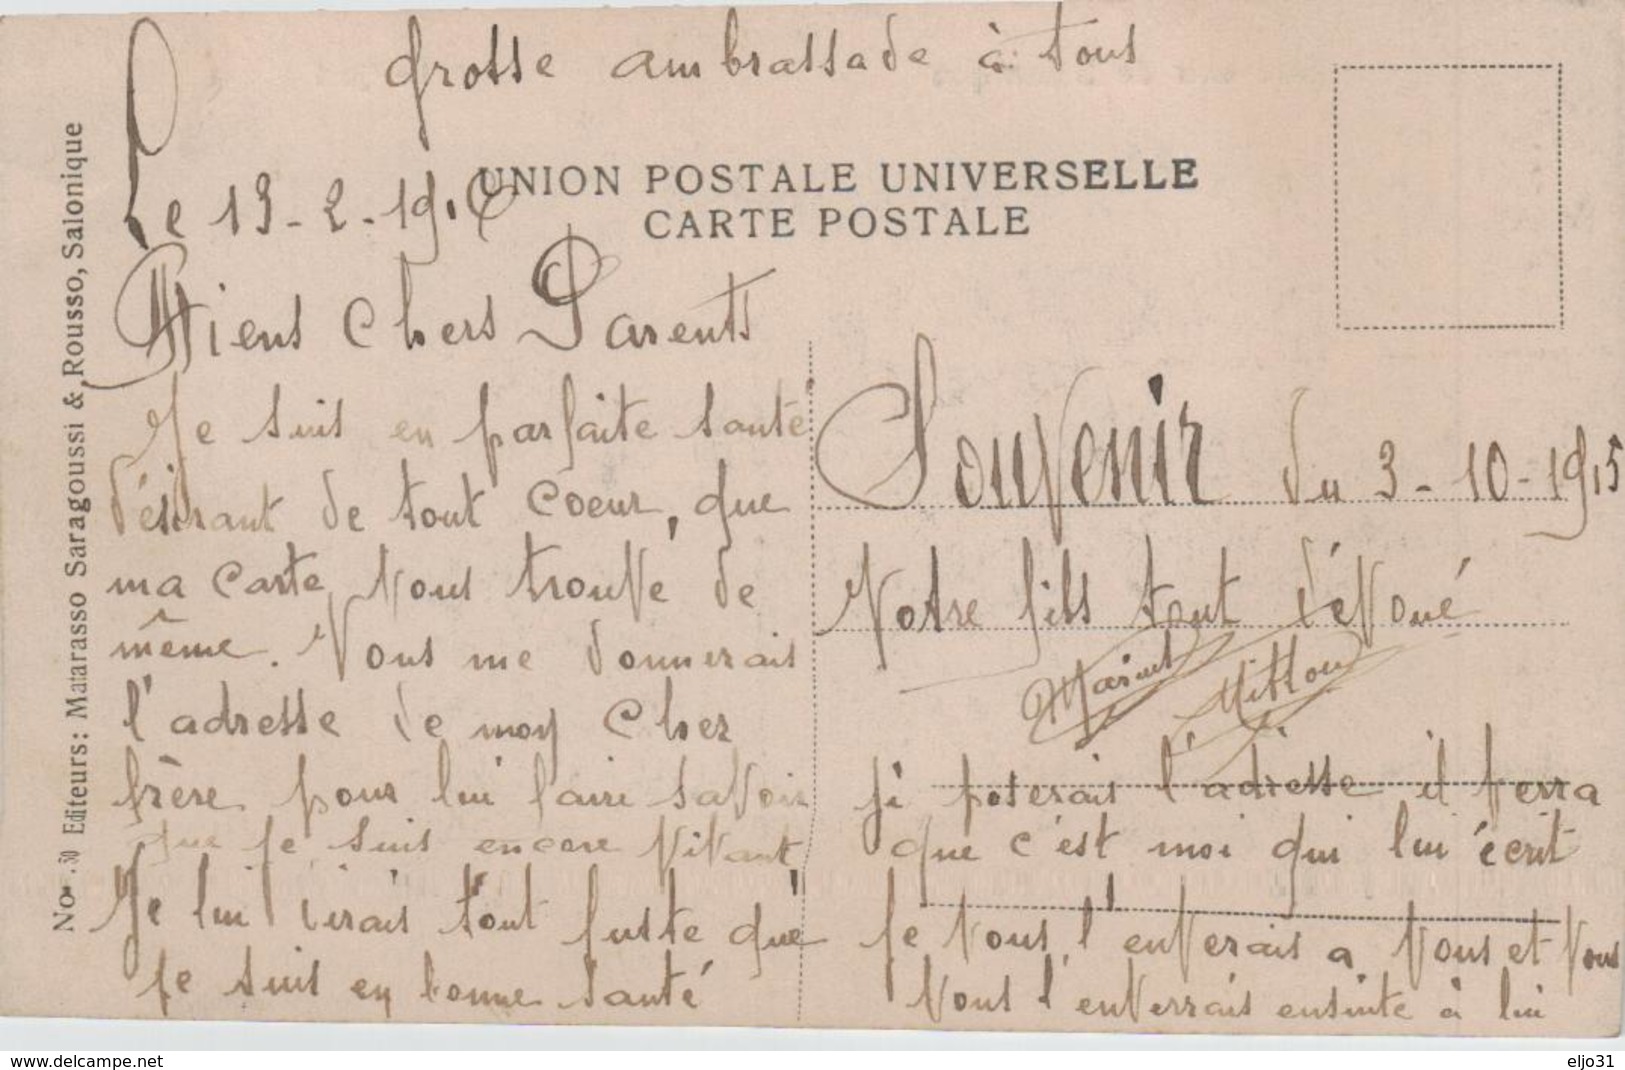 grosse ambrassade à tous
UNION POSTALE UNIVERSELLE
CARTE POSTALE
Le 13-2-191
Miens Chers Parents
Je suis en parfaite santé
désirant de tout coeur, que
ma carte vous trouve de
même. Vous me donnerais
l'adresse de moy Cher
frère pour lui faire savoir
que je suis encore vivant
Je lui dirais tout juste que
je suis en bonne santé
Souvenir du 3-10-1915
Votre fils tout dévoué
ji poserais l'adresse il verra
que c'est moi qui lui écrit
je vous l'enverais a vous et vous
vous l'enverrais ensuite à lui
No. 30 Editeurs: Matarasso Saragoussi & Rousso, Salonique
www.delcampe.net
eljo31